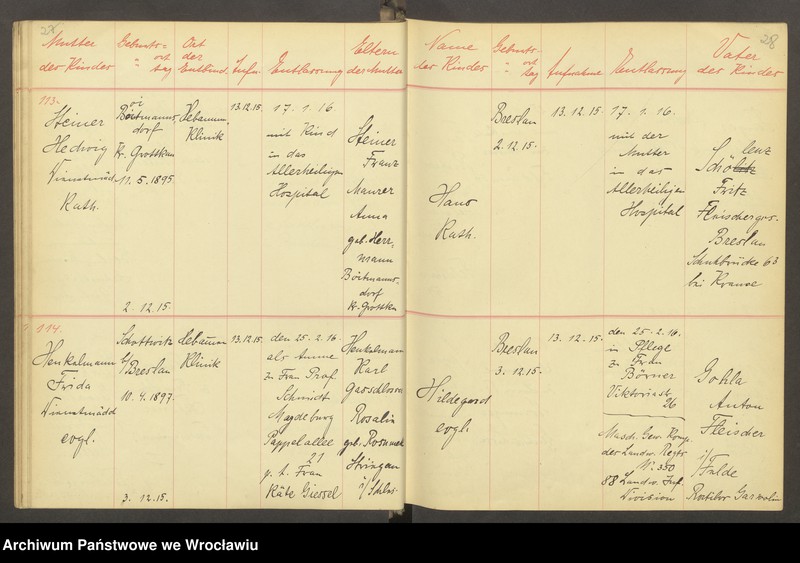 28
Mutter der Kinder
Geburts-ort " tag
Ort der Entbind.
Aufn.
Entlassung
Eltern der Mutter
113.
Steiner
Hedwig
Dienstmäd.
Kath.
dorf
Kr. Grottkau
11. 5. 1895
2. 12. 15.
Hebamm.
Klinik
13.12.15.
17. 1. 16
mit Kind
in das
Allerheiligen
Hospital
Steiner
Franz
Maurer
Anna
geb. Herr-
mann
dorf
Kr. Grottkau
114.
Henkelmann
Frida
Dienstmädch
evgl.
Schottwitz
b/Breslau
10. 4. 1897.
3. 12. 15.
Hebamm
Klinik
13.12.15.
den 25. 2. 16.
als Amme
zu Frau Prof
Schmidt
Magdeburg
Pappelallee
21
Frau
Käte Giessel
Henkelmann
Karl
Rosalie
Striegau
i/Schles.
28
Name der Kinder
Geburts-ort " tag
Aufnahme
Entlassung
Vater der Kinder
Hans
Kath.
Breslau
2. 12. 15.
13. 12. 15.
17. 1. 16.
mit der
Mutter
in das
Allerheiligen
Hospital
Fritz
Fleischerges.
Breslau
Schuhbrücke 63
bei Krause
Hildegard
evgl.
Breslau
3. 12. 15.
13. 12. 15.
den 25. 2. 16.
in Pflege
zu Frau
Börner
Viktoriastr.
26
Masch. Gew. Komp.
der Landw. Regts
N. 350
88 Landw. Inf.
Division
Gohla
Anton
Fleischer
i/Felde
Archiwum Państwowe we Wrocławiu